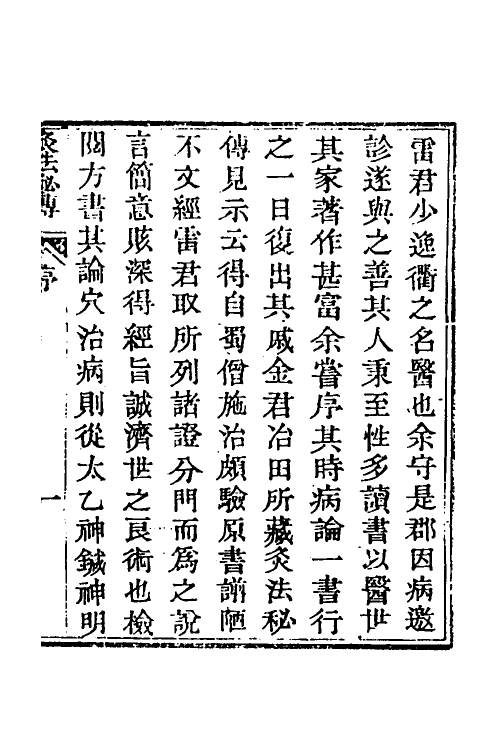 雷君少逸衢之名醫也余守是郡因病邀
診遂與之善其人秉至性多讀書以醫世
其家著作甚富余嘗序其時病論一書行
之一日復出其戚金君冶田所藏灸法秘
傳見示云得自蜀僧施治頗驗原書譾陋
不文經雷君取所列諸證分門而爲之說
言簡意賅深得經旨誠濟世之良術也檢
閱方書其論穴治病則從太乙神鍼神明
灸法秘傳 序 一